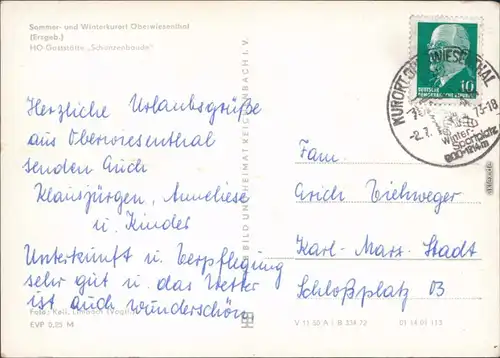 Sommer- und Winterkurort Oberwiesenthal
(Erzgeb.)
HO-Gaststätte „Schanzenbaude"
Herzliche Urlaubsgrüße
aus Oberwiesenthal
senden Euch
Klausjürgen, Anneliese
u. Kinder
Unterkunft u. Verpflegung
sehr gut u. das Wetter
ist auch wunderschön
Foto: Keil, (Vogtl.)
EVP 0,25 M
BILD UND HEIMAT REICHENBACH I. V.
DEUTSCHE
DEMOKRATISCHE REPUBLIK
10
KURORT OBERWIESENTHAL
-2.7.73-18
Winter-
Sportplatz
900-1214 m
Fam.
Erich Viehweger
Karl-Marx-Stadt
Schloßplatz 03
V 11 50 A 1 B 334/72 01 14 01 113